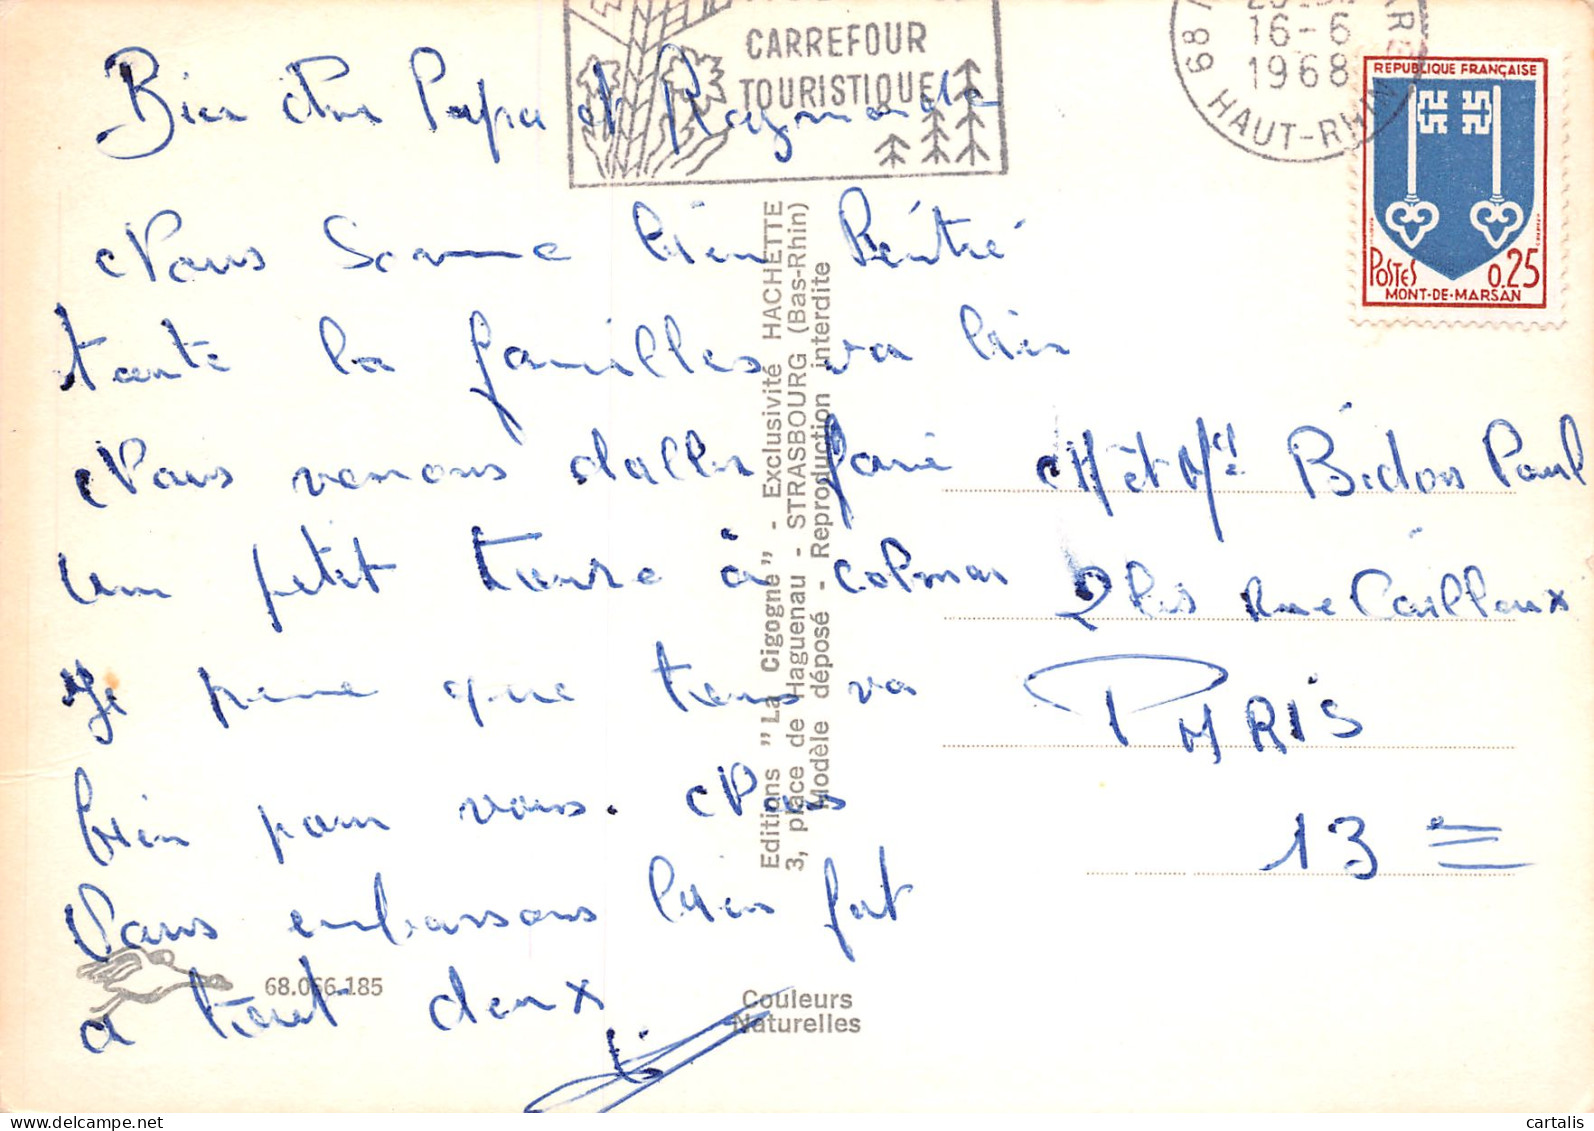 CARREFOUR
TOURISTIQUE
16-6
1968
68
HAUT-RHIN
REPUBLIQUE FRANÇAISE
POSTES 0.25
MONT-DE-MARSAN
Bien cher Papa et Raymonde
Nous somme bien Rentré
toute la familles va bien
Nous venons daller faire
un petit toure à colmar
Je pense que tous va
bien pour vous. Nous
Vous embrassons bien fort
a tout deux
Editions "La Cigogne" - Exclusivité HACHETTE
3, place de Haguenau - STRASBOURG (Bas-Rhin)
Modèle déposé - Reproduction interdite
M et Md Bidon Paul
2 bis Rue Cailloux
PARIS
13 e
68.066.185
Couleurs
Naturelles
cartalis